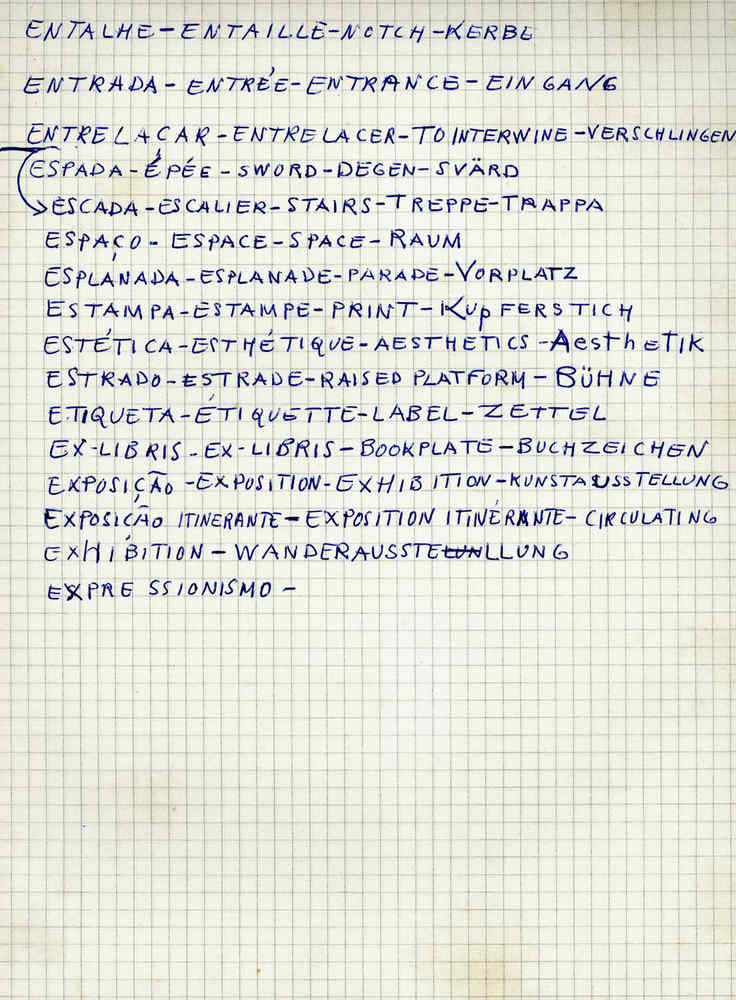 ENTALHE-ENTAILLE-NOTCH-KERBE
ENTRADA-ENTRÉE-ENTRANCE-EINGANG
ENTRELAÇAR-ENTRELACER-TO INTERWINE-VERSCHLINGEN
ESPADA-ÉPÉE-SWORD-DEGEN-SVÄRD
ESCADA-ESCALIER-STAIRS-TREPPE-TRAPPA
ESPAÇO-ESPACE-SPACE-RAUM
ESPLANADA-ESPLANADE-PARADE-VORPLATZ
ESTAMPA-ESTAMPE-PRINT-KUpFERSTICH
ESTÉTICA-ESTHÉTIQUE-AESTHETICS-AestheTIK
ESTRADO-ESTRADE-RAISED PLATFORM-BÜHNE
ETIQUETA-ÉTIQUETTE-LABEL-ZETTEL
EX-LIBRIS-EX-LIBRIS-BOOKPLATE-BUCHZEICHEN
EXPOSIÇÃO-EXPOSITION-EXHIBITION-KUNSTAUSSTELLUNG
EXPOSIÇÃO ITINERANTE-EXPOSITION ITINÉRANTE-CIRCULATING
EXHIBITION-WANDERAUSSTELUNLLUNG
EXPRESSIONISMO-